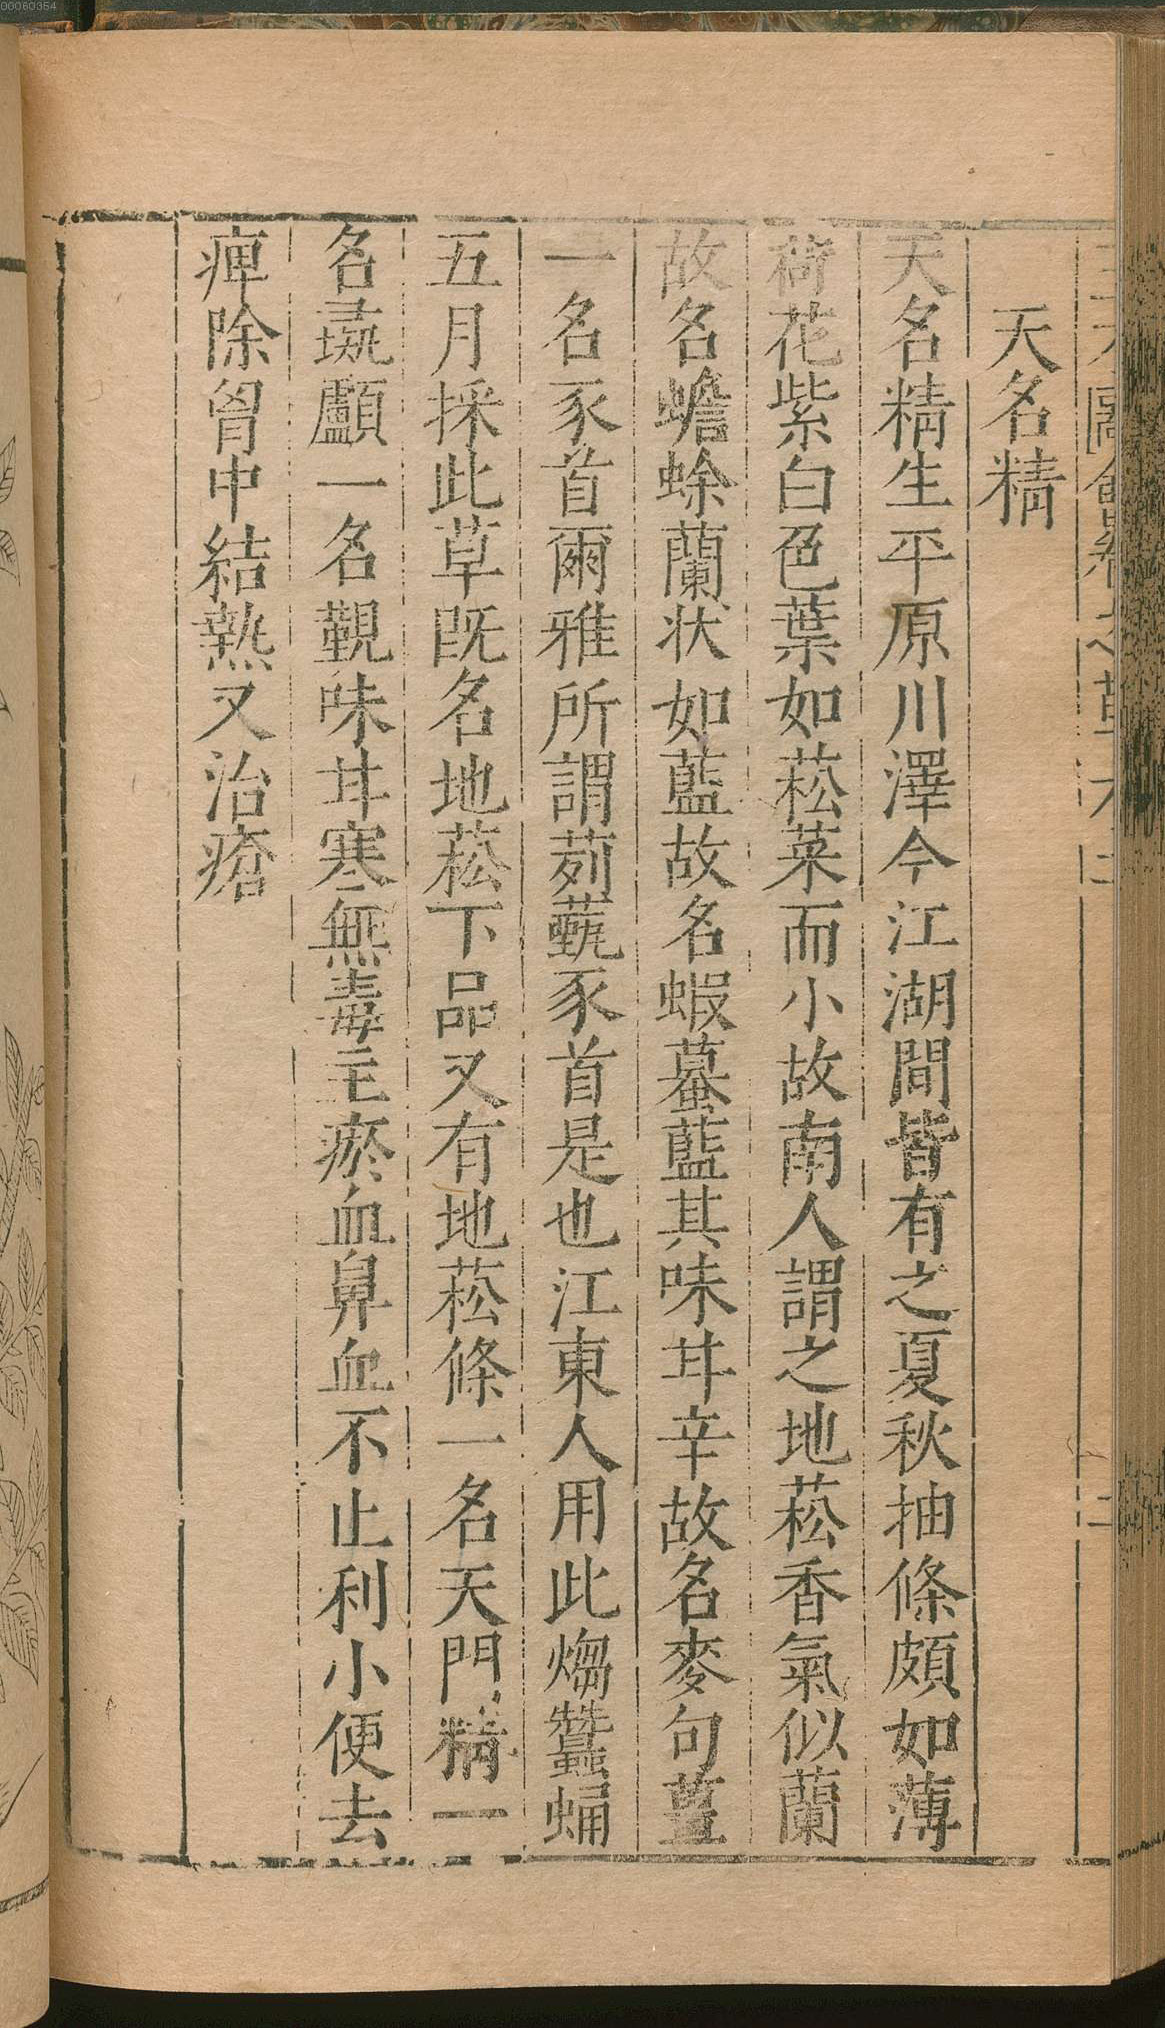 00060354
三才圖會卷之草木 二
天名精
天名精生平原川澤今江湖間皆有之夏秋抽條頗如薄
荷花紫白色葉如菘菜而小故南人謂之地菘香氣似蘭
故名蟾蜍蘭狀如藍故名蝦蟇藍其味甘辛故名麥句薑
一名豕首爾雅所謂茢薽豕首是也江東人用此煼蠶蛹
五月採此草既名地菘下品又有地菘條一名天門精一
名彘顱一名覲味甘寒無毒主瘀血鼻血不止利小便去
痺除胷中結熱又治瘡